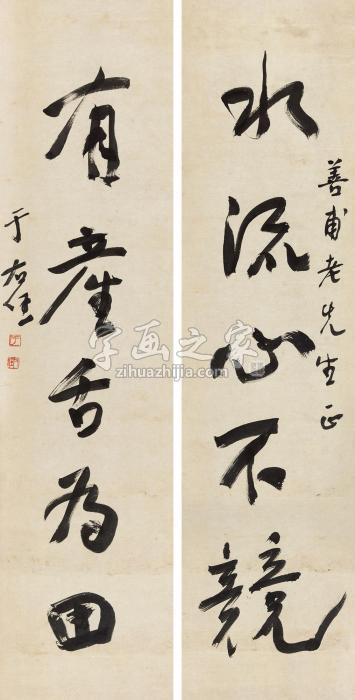 善甫老先生正
水流心不競
有產舌為田
于右任
字画之家
zihuazhijia.com